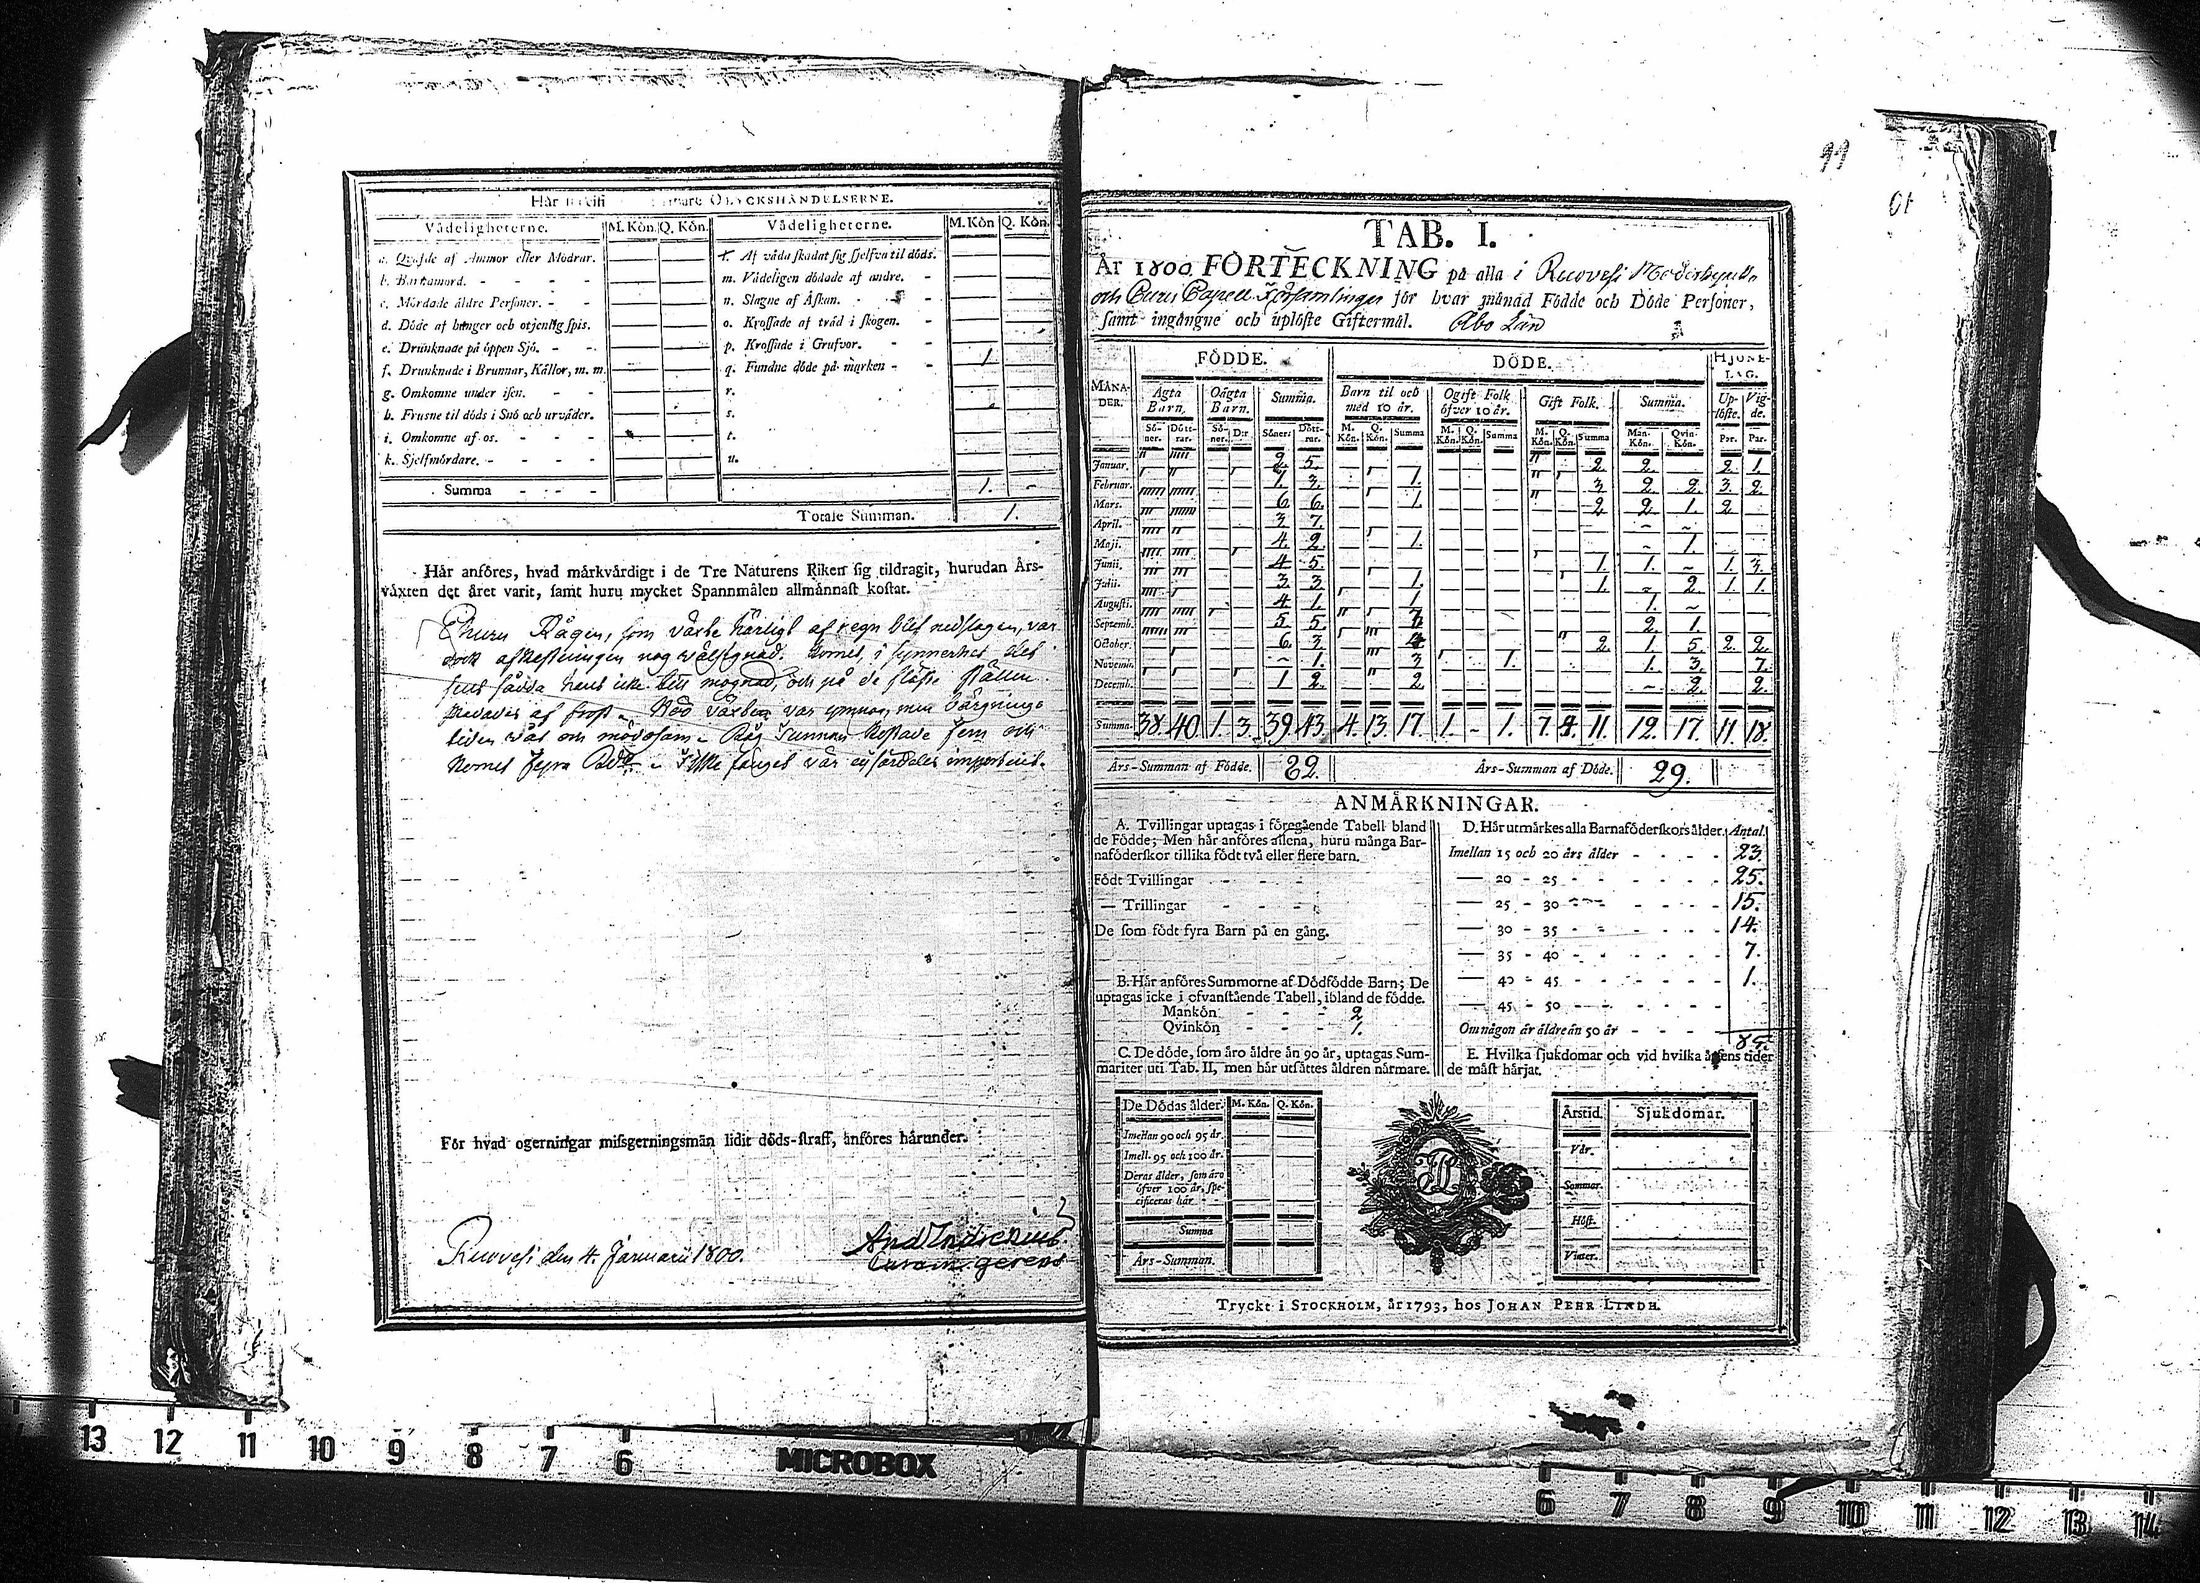 OLYCKSHÄNDELSERNE.
Vådeligheterne. M. Kön. Q. Kön. Vådeligheterne. M. Kön Q. Kön.
a. Qvafde af Ammor eller Modrar.
b. Barnamord.
c. Mördade äldre Personer.
d. Döde af hunger och otjenlig spis.
e. Drunknade på öppen Sjö.
f. Drunknade i Brunnar, Källor, m. m.
g. Omkomne under isen.
h. Frusne til döds i Snö och urväder.
i. Omkomne af os.
k. Sjelfmördare.
Summa
l. Af våda skadat sig sjelfva til döds.
m. Vådeligen dödade af andre.
n. Slagne af Åskan.
o. Krossade af träd i skogen.
p. Krossade i Grufvor.
q. Fundne döde på marken - 1
r.
s.
t.
u.
1. -
Totale Summan. 1.
Här anföres, hvad märkvärdigt i de Tre Naturens Riken sig tildragit, hurudan Års-
växten det året varit, samt huru mycket Spannmålen allmännast kostat.
Ehuru Rågen, som växte härligt af regn blef nedslagen, var
dock afkastningen nog wälsignad. Kornet, i synnerhet det
sent sådda hans icke bli mognad, och på de fläste ställen
skadades af frost - Höö växten var ymnog men bärgnings
tiden wåt och mödosam - Råg Tunnan kostade fem och
Kornet fyra Rdr - Fiske fånget var ej särdeles importent.
För hvad ogerningar missgerningsmän lidit döds-straff, anföres härunder.
Ruovesi den 4. Januarii 1800.
And Indrenius
Curam gerens
99
10
TAB. I.
År 1800 FÖRTECKNING på alla i Ruovesi Moderkyrko
och Curu Capell Församlingar för hvar månad Födde och Döde Personer,
samt ingångne och uplöste Giftermål. Åbo Län
FÖDDE. DÖDE. HJONE-LAG.
MÅNA-DER. Ägta Barn. Oägta Barn. Summa. Barn til och med 10 år. Ogift Folk öfver 10 år. Gift Folk. Summa. Up-löste. Vig-de.
Sö-ner. Dött-rar. Sö-ner. D:r Söner. Dött-rar. M. Kön. Q. Kön. Summa M. Kön. Q. Kön. Summa M. Kön. Q. Kön. Summa Man-Kön. Qvin-Kön. Par. Par.
Januar. 2. 5. 2. 2. 2. 1.
Februar. 1. 3. 1. 3. 2. 2. 3. 2.
Mars. 6. 6. 1. 2 2. 1. 2.
April. 3. 7.
Maji. 4. 2. 1. 1.
Junii. 4. 5. 1. 1. 1. 3.
Julii. 3. 3. 1. 1. 2. 1. 1.
Augusti. 4. 1. 1. 1.
Septemb. 5. 5. 2. 1.
October. 6. 3. 4 2. 1. 5. 2. 2.
Novemb. 1. 3 1. 1. 3. 7.
Decemb. 1 2. 2. 2. 2.
Summa. 38. 40. 1. 3. 39. 43. 4. 13. 17. 1. - 1. 7. 4. 11. 12. 17. 11. 18.
Års-Summan af Födde. 82. Års-Summan af Döde. 29.
ANMÄRKNINGAR.
A. Tvillingar uptagas i föregående Tabell bland
de Födde; Men här anföres allena, huru många Bar-
naföderskor tillika födt två eller flere barn.
Födt Tvillingar
— Trillingar
De som födt fyra Barn på en gång.
B. Här anföres Summorne af Dödfödde Barn; De
uptagas icke i ofvanstående Tabell, ibland de födde.
Mankön - - - 2
Qvinkön - - - 1.
C. De döde, som äro äldre än 90 år, uptagas Sum-
mariter uti Tab. II, men här utsättes åldren närmare.
De Dödas ålder. M. Kön. Q. Kön.
Imellan 90 och 95 år.
Imell. 95 och 100 år.
Deras ålder, som äro
öfver 100 år, spe-
cificeras här
Summa
Års-Summan.
D. Här utmärkes alla Barnaföderskors ålder. Antal.
Imellan 15 och 20 års ålder - - - - 23.
— 20 - 25 - - - - - - 25.
— 25 - 30 - - - - - - 15.
— 30 - 35 - - - - - - 14.
— 35 - 40 - - - - - - 7.
— 40 - 45 - - - - - - 1.
— 45 - 50 - - - - - -
Om någon är äldre än 50 år - - - -
85.
E. Hvilka sjukdomar och vid hvilka årsens tider
de mäst härjat.
Årstid. Sjukdomar.
Vår.
Sommar.
Höst.
Vinter.
Tryckt i STOCKHOLM, år 1793, hos JOHAN PEHR LINDH.
13 12 11 10 9 8 7 6 MICROBOX 6 7 8 9 10 11 12 13 14